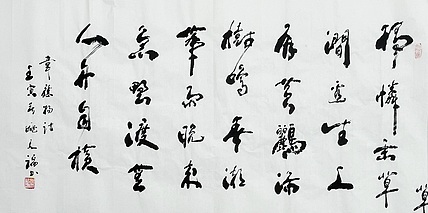 獨憐幽草
澗邊生上
有黃鸝深
樹鳴春潮
帶雨晚來
急野渡無
人舟自橫
韋應物詩
壬寅
書